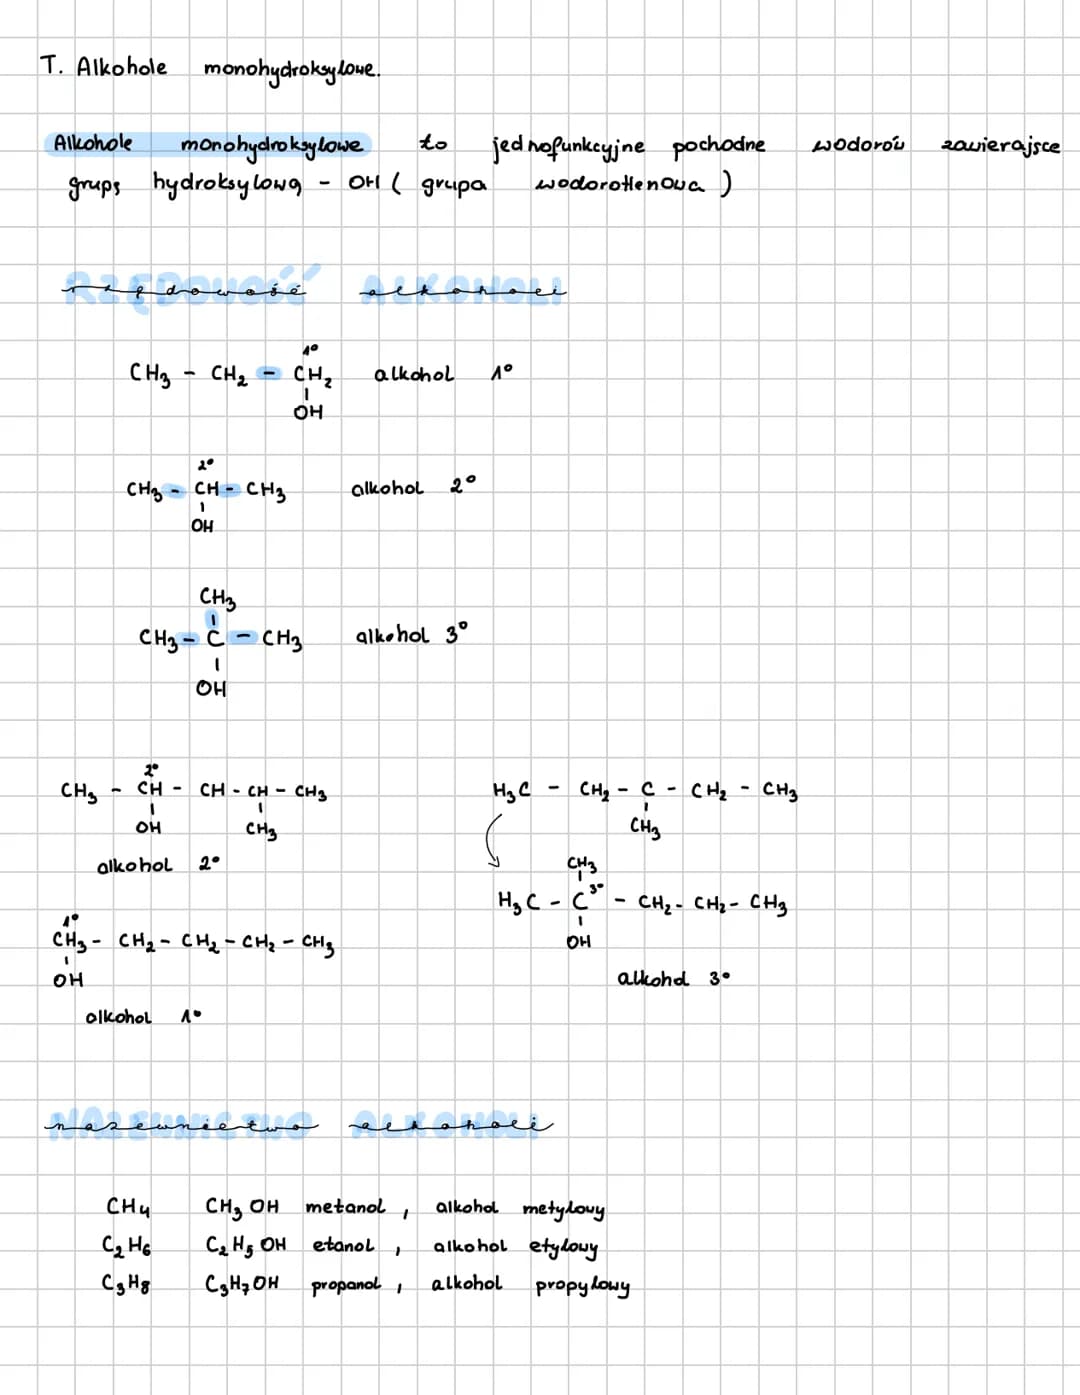 T. Alkohole monohydroksylowe.
Alkohole monohydroksylowe to jednofunkcyjne pochodne wodorów zawierajsce
grups hydroksylową - OH ( grupa wodorotlenowa )
RZĘDOWOŚĆ ALKOHOLI
rzędowość alkoholi
1°
CH3 - CH2 - CH2 alkohol 1°
OH
2°
CH3 - CH - CH3 alkohol 2°
OH
CH3
CH3 - C - CH3 alkohol 3°
OH
2°
CH3 - CH - CH - CH - CH3
OH CH3
alkohol 2°
1°
CH3 - CH2 - CH2 - CH2 - CH3
OH
alkohol 1°
H3C - CH2 - C - CH2 - CH3
CH3
CH3
H3C - C3° - CH2 - CH2 - CH3
OH
alkohol 3°
NAZEWNICTWO ALKOHOLI
nazewnictwo alkoholi
CH4 CH3 OH metanol , alkohol metylowy
C2 H6 C2 H5 OH etanol , alkohol etylowy
C3H8 C3H7 OH propanol , alkohol propylowy